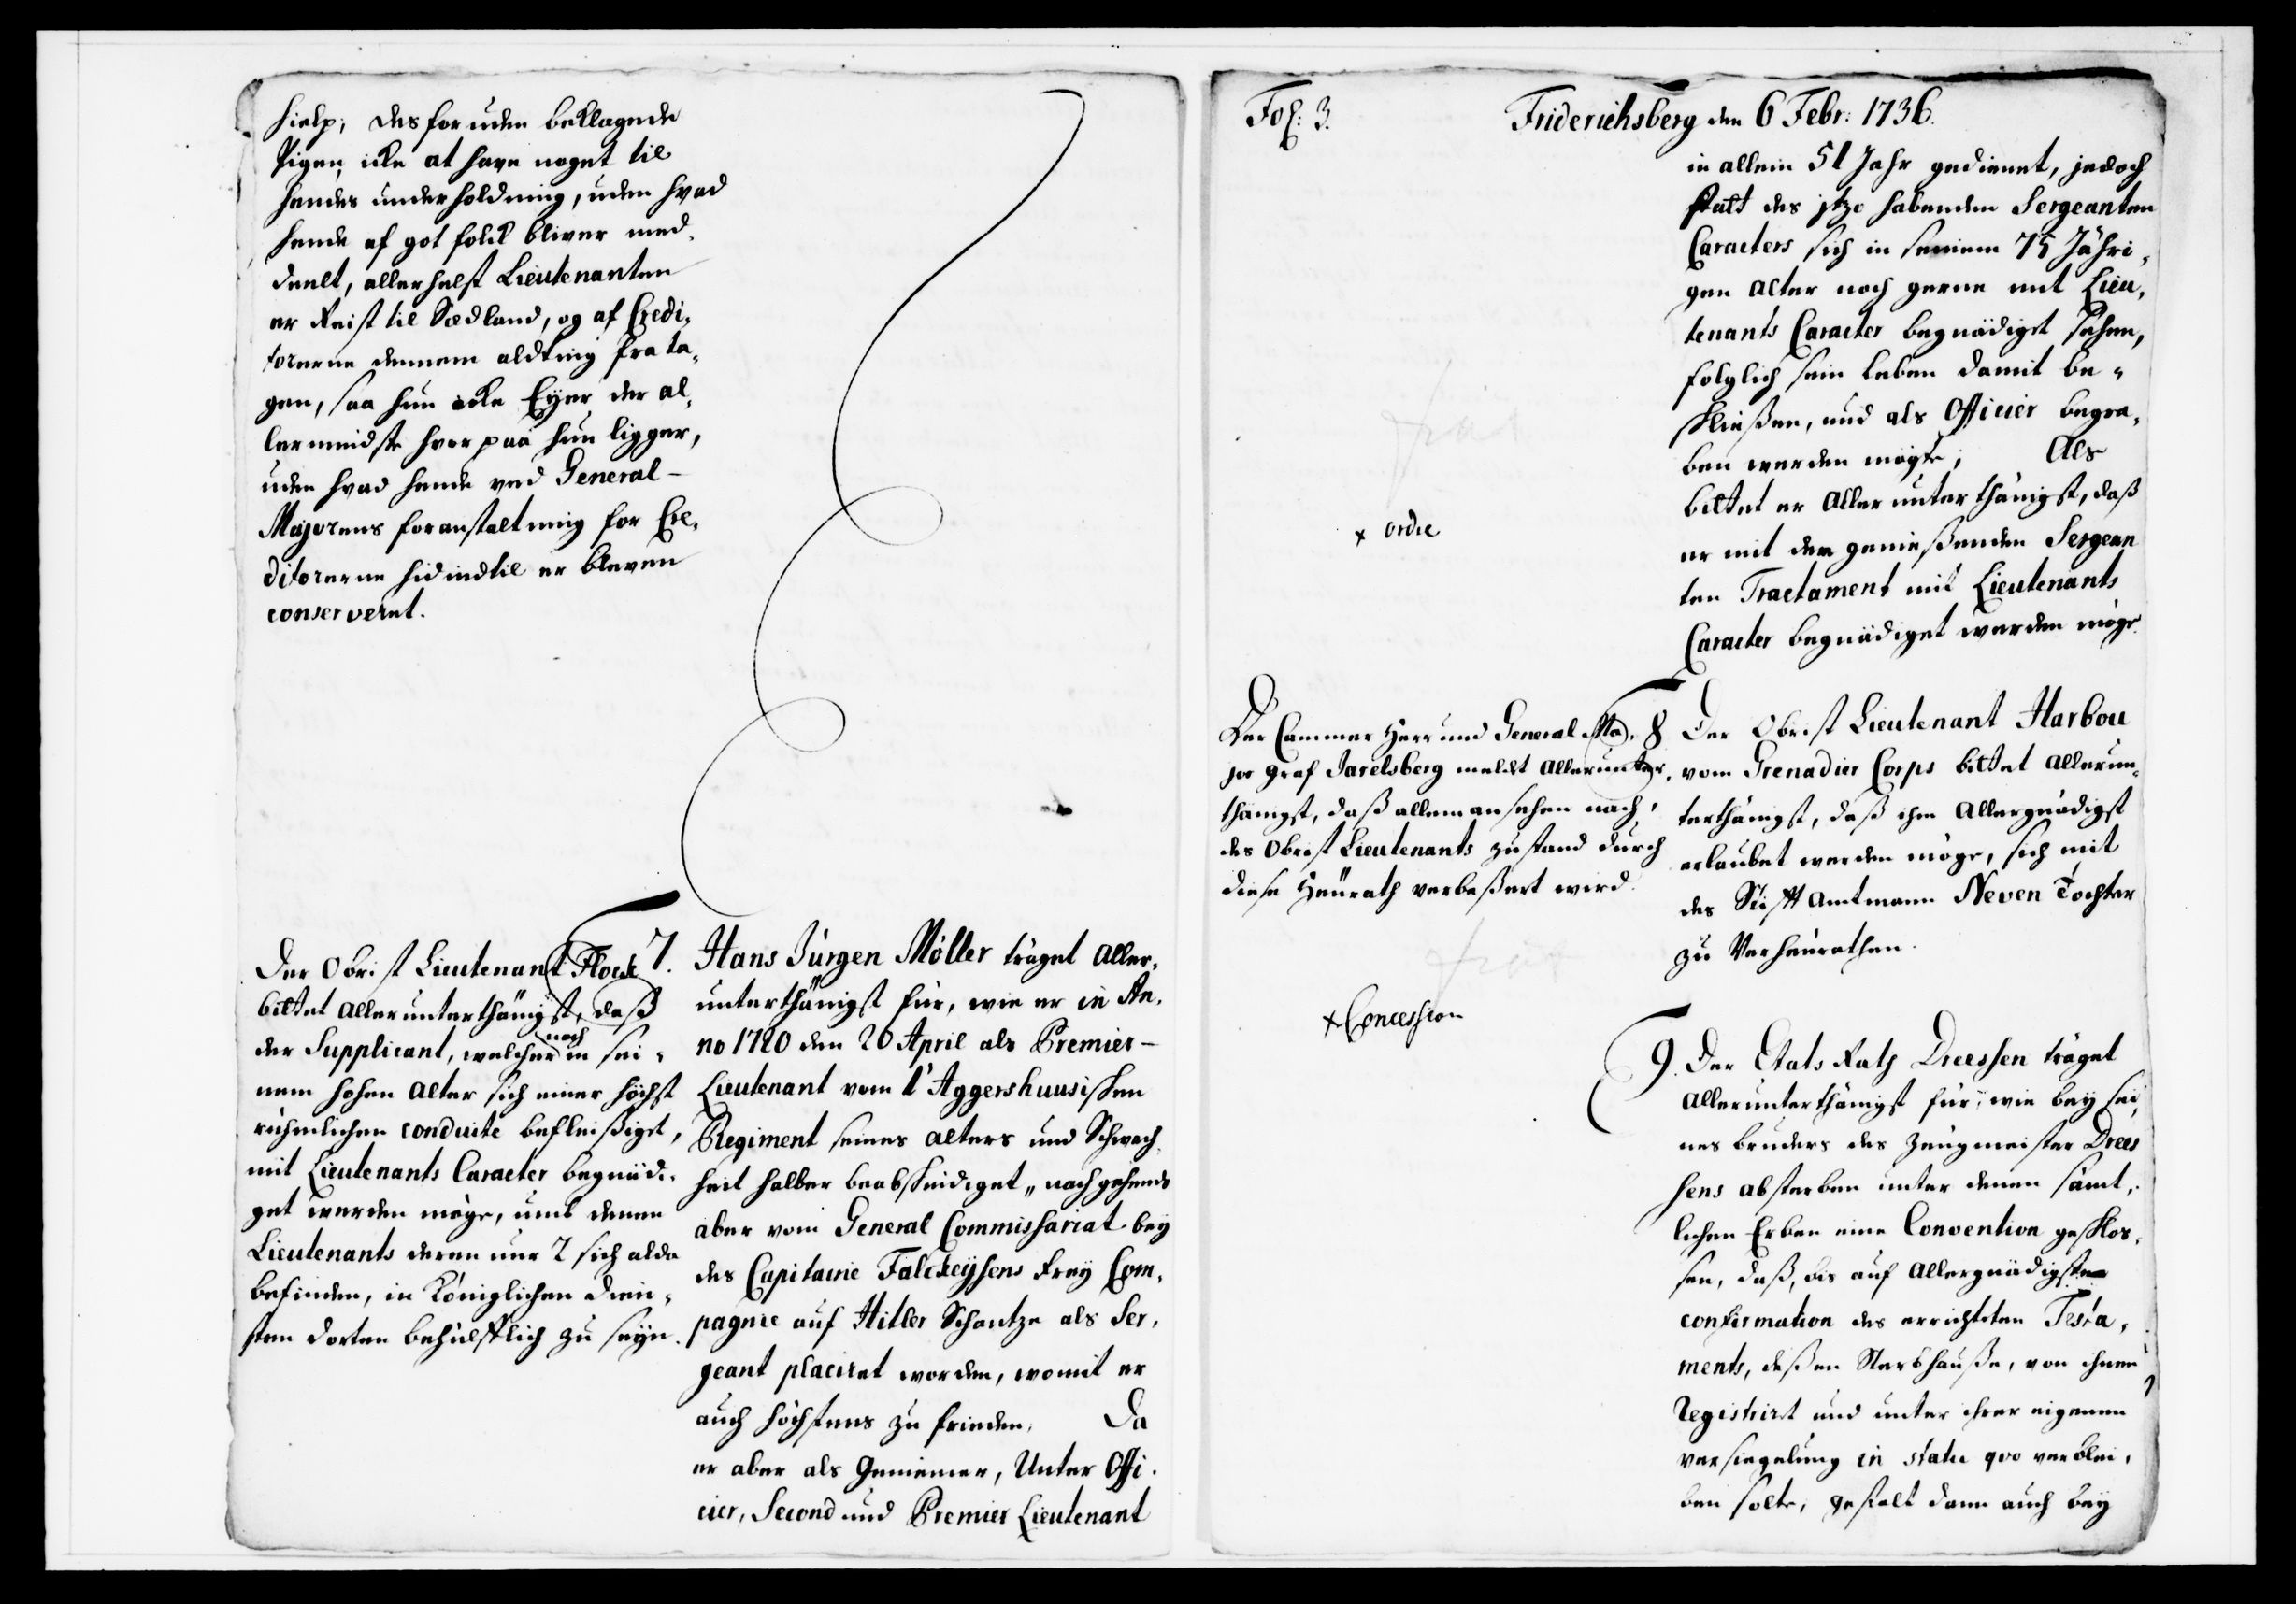 hielp; des foruden beklagede
Pigen, icke at have noget til
hendes underholdning, uden hvad
hende af got folck bliver med,
deelt, allerhelst Lieutenanten
er Reist til Sædland, og af Credi,
torerne dennem aldting fra ta,
gen, saa hun icke Eyer der al,
lermindste hvor paa hun ligger,
uden hvad hende ved General-
Majorens foranstaltning for Cre,
ditorerne hidindtil er bleven
conserveret.
Der Obrist Lieutenant Flock
bittet allerunterthänigst, daß
der Supplicant, welcher noch in sei,
nem hohen alter sich einer höchst
rühmlichen conduite befleißiget,
mit Lieutenants Caracter begnädi,
get werden möge, umb denen
Lieutenants deren nur 2 sich alda
befinden, in Königlichen Dien,
sten dorten behülfflich zu seyn.
7. Hans Jürgen Möller träget aller,
unterthänigst für, wie er in An,
no 1720 den 20 April als Premier-
Lieutenant vom 1' Aggershuusischen
Regiment seines alters und Schwach,
heit halber beabscheidiget, nachgehends
aber vom General Commissariat bey
des Capitaine Falckeysens Frey Com,
pagnie auf Hitler Schantze als Ser,
geant placiret worden, womit er
auch höchstens zu frieden, Da
er aber als Gemeiner, Unter Offi,
cier, Second und Premier Lieutenant
Fol: 3.
Friderichsberg den 6 Febr: 1736.
in allem 51 Jahr gedienet, jedoch
statt des jtzo habenden Sergeanten
Caracters sich in seinem 75 Jähri,
gen alter noch gerne mit Lieu,
tenants Caracter begnädiget sehen,
folglich sein leben damit be,
schließen, und als Officier begra,
ben werden mögte; Als
bittet er Allerunterthänigst, daß
er mit dem genießenden Sergean
ten Tractament mit Lieutenants
Caracter begnädiget werden möge.
x ordre
Der Cammer Herr und General Ma,
jor Graf Jarelsberg meldt allerunter,
thänigst, daß allem ansehen nach,
des Obrist Lieutenants zustand durch
diese Heürath verbeßert wird.
8 Der Obrist Lieutenant Harbou
vom Grenadier Corps bittet allerun,
terthänigst, daß ihm allergnädigst
erlaubet werden möge, sich mit
des Stifft Amtmann Neven Tochter
zu Verheurathen.
x Concession
9. Der Etats Rath Dreessen träget
allerunterthänigst für, wie bey sei,
nes bruders des Zeugmeister Drees
sens absterben unter denen sämt,
lichen Erben eine Convention geschlos,
sen, daß, bis auf Allergnädigste
confirmation des errichteten Testa,
ments, deßen Sterbhauße, von ihnen
Registrirt und unter ihrer eigenen
versiegelung in statu qvo verblei,
ben solte, gestalt dann auch bey